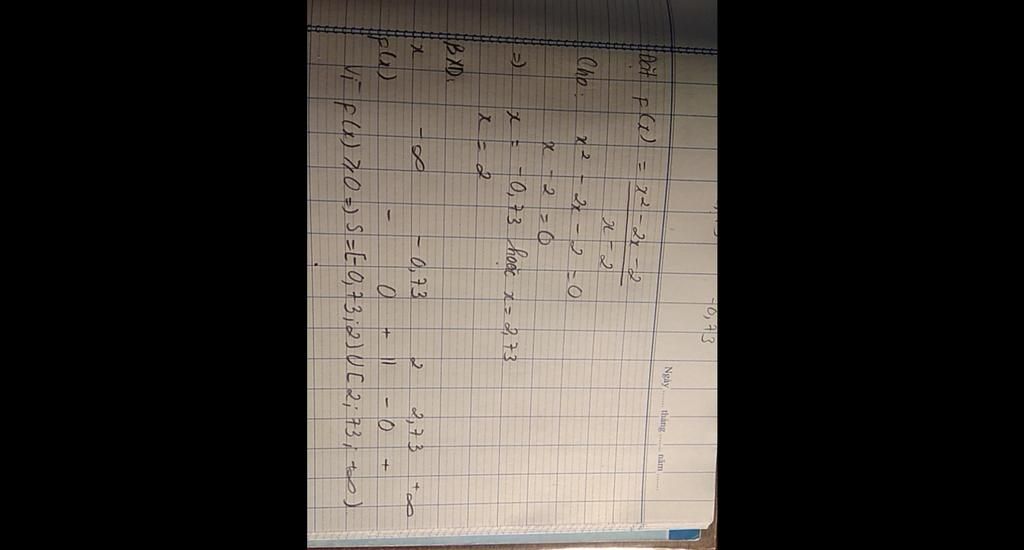 -0,73
Ngày ...... tháng ...... năm ......
Đặt f(x) = x² - 2x - 2
x - 2
Cho: x² - 2x - 2 = 0
x - 2 = 0
=) x = -0,73 hoặc x = 2,73
x = 2
BXD:
x -∞ -0,73 2 2,73 +∞
f(x) - 0 + || - 0 +
Vì f(x) ⩾ 0 =) S = [-0,73; 2) U [2; 73; +∞)